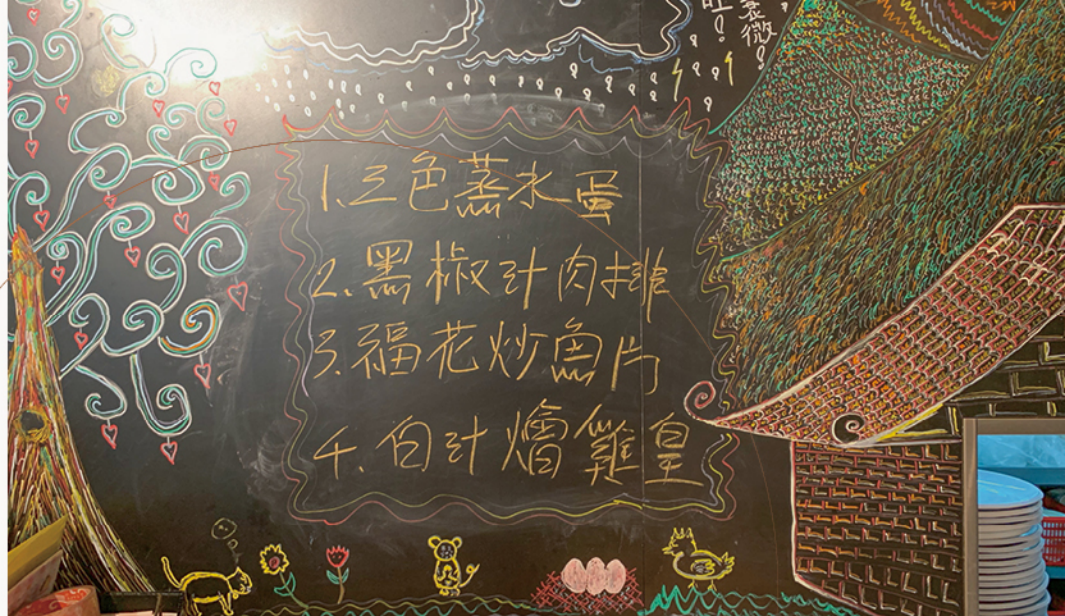 1.三色蒸水蛋
2.黑椒汁肉排
3.福花炒魚片
4.白汁燴雞皇